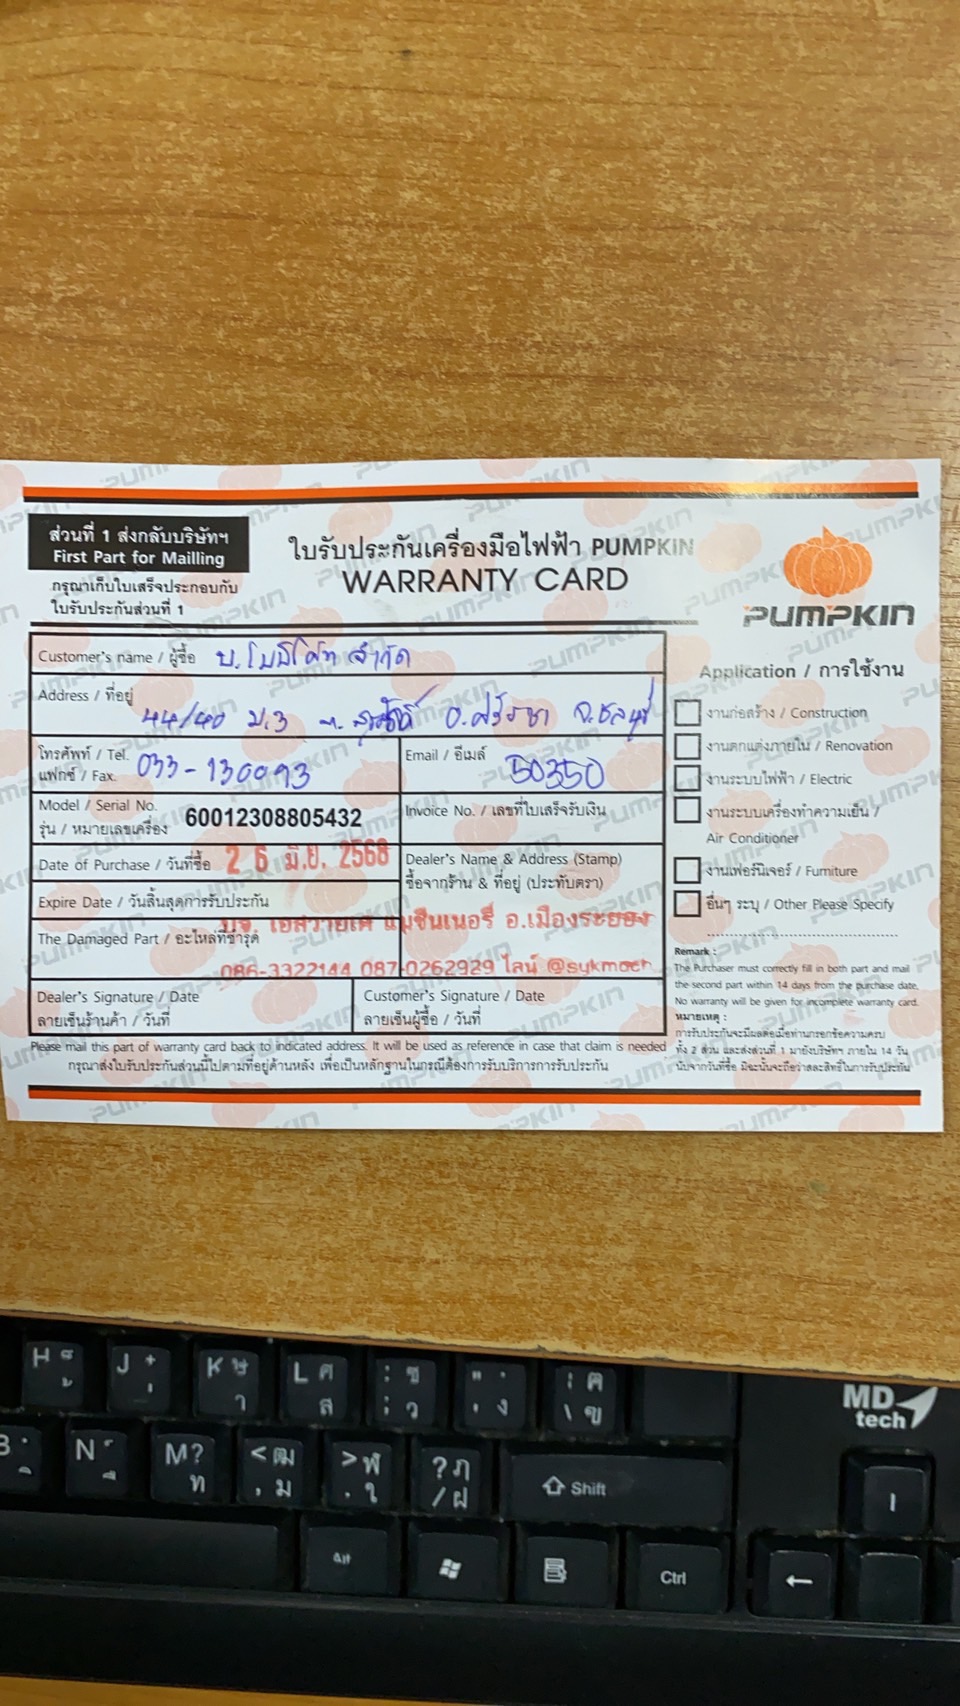 ส่วนที่ 1 ส่งกลับบริษัทฯ
First Part for Mailling
กรุณาเก็บใบเสร็จประกอบกับ
ใบรับประกันส่วนที่ 1
ใบรับประกันเครื่องมือไฟฟ้า PUMPKIN
WARRANTY CARD
PUMPKIN
Customer's name / ผู้ซื้อ บ. โมบิโค้ท จำกัด
Address / ที่อยู่
44/40 ม.3 ต. สุรศักดิ์ อ.ศรีราชา จ.ชลบุรี
โทรศัพท์ / Tel. 033-130093
แฟกซ์ / Fax.
Email / อีเมล์
50350
Model / Serial No.
รุ่น / หมายเลขเครื่อง 60012308805432
Invoice No. / เลขที่ใบเสร็จรับเงิน
Date of Purchase / วันที่ซื้อ 2 6 มิ.ย. 2568
Dealer's Name & Address (Stamp)
ซื้อจากร้าน & ที่อยู่ (ประทับตรา)
Expire Date / วันสิ้นสุดการรับประกัน
บจ. เอสวายเค แมชชีนเนอรี่ อ.เมืองระยอง
The Damaged Part / อะไหล่ที่ชำรุด
086-3322144 087-0262929 ไลน์ @sykmach
Dealer's Signature / Date
ลายเซ็นร้านค้า / วันที่
Customer's Signature / Date
ลายเซ็นผู้ซื้อ / วันที่
Please mail this part of warranty card back to indicated address. It will be used as reference in case that claim is needed
กรุณาส่งใบรับประกันส่วนนี้ไปตามที่อยู่ด้านหลัง เพื่อเป็นหลักฐานในกรณีต้องการรับบริการการรับประกัน
Application / การใช้งาน
งานก่อสร้าง / Construction
งานตกแต่งภายใน / Renovation
งานระบบไฟฟ้า / Electric
งานระบบเครื่องทำความเย็น /
Air Conditioner
งานเฟอร์นิเจอร์ / Furniture
อื่นๆ ระบุ / Other Please Specify
Remark :
The Purchaser must correctly fill in both part and mail
the second part within 14 days from the purchase date.
No warranty will be given for incomplete warranty card.
หมายเหตุ :
การรับประกันจะมีผลต่อเมื่อท่านกรอกข้อความครบ
ทั้ง 2 ส่วน และส่งส่วนที่ 1 มายังบริษัทฯ ภายใน 14 วัน
นับจากวันที่ซื้อ มิฉะนั้นจะถือว่าสละสิทธิ์ในการรับประกัน
MD
tech
H J K L
N M ?
Shift
Alt
Ctrl